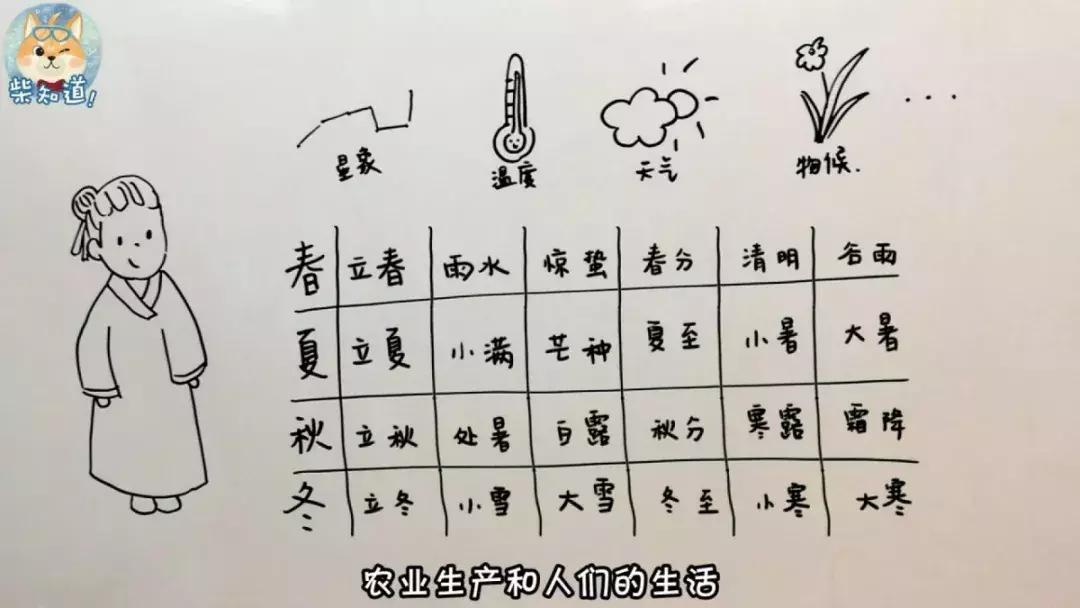 柴知道!
星象 温度 天气 物候. ...
春 立春 雨水 惊蛰 春分 清明 谷雨
夏 立夏 小满 芒种 夏至 小暑 大暑
秋 立秋 处暑 白露 秋分 寒露 霜降
冬 立冬 小雪 大雪 冬至 小寒 大寒
农业生产和人们的生活